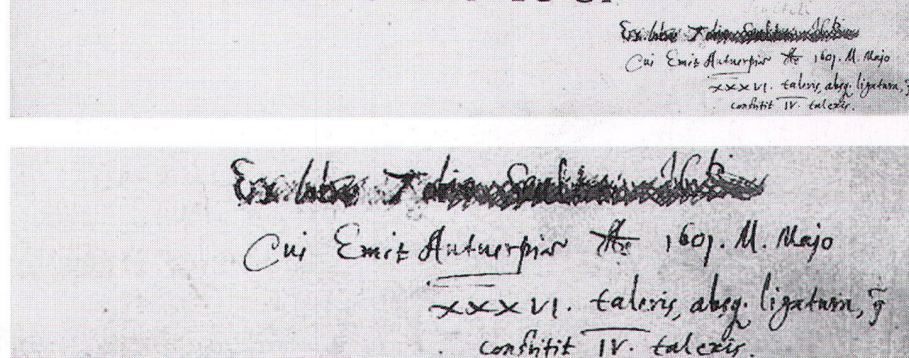 Ex libro Tobiæ
Cui Emit Antuerpiæ Ao 1601. M. Majo
XXXVI. taleris, absq. ligatura, q̃
constitit IV. taleris.
Ex libro Tobiæ
Cui Emit Antuerpiæ Ao 1601. M. Majo
XXXVI. taleris, absq. ligatura, q̃
constitit IV. taleris.